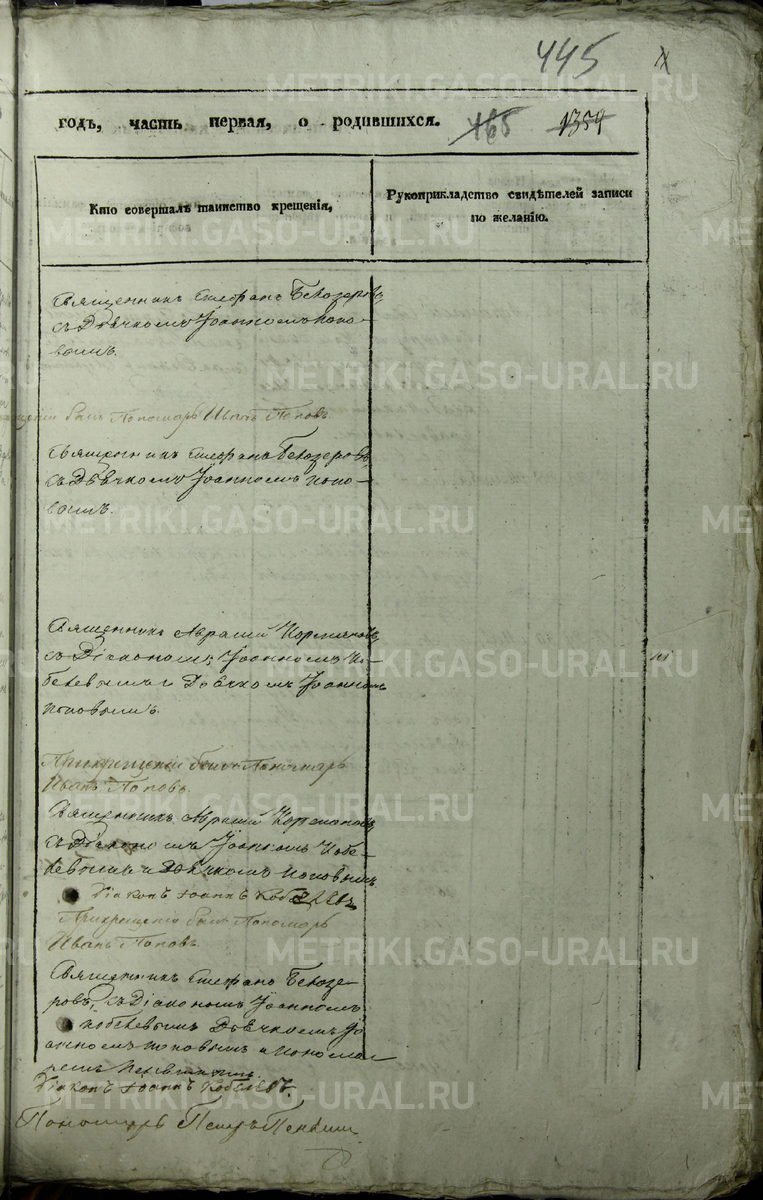 445
годъ, часть первая, о родившихся. 465 1354
Кто совершалъ таинство крещенія,
Рукоприкладство свидѣтелей записи по желанію.
Священникъ Стефанъ Белозеровъ
съ Дьячкомъ Іоанномъ Попо-
вымъ.
былъ Пономарь Иванъ Поповъ
Священникъ Стефанъ Белозеровъ
съ Дьячкомъ Іоанномъ Попо-
вымъ.
Священникъ
съ Діакономъ Іоанномъ Ко-
белевымъ и Дьячкомъ Іоанномъ
Поповымъ.
При крещеніи былъ Пономарь
Иванъ Поповъ.
Священникъ
съ Діакономъ Іоанномъ Кобе-
левымъ и Дьячкомъ Поповымъ
Діаконъ Іоаннъ Кобелевъ
При крещеніи былъ Пономарь
Иванъ Поповъ.
Священникъ Стефанъ Белозе-
ровъ, съ Діакономъ Іоанномъ
Кобелевымъ Дьячкомъ Іо-
анномъ Поповымъ и Понома-
ремъ
Діаконъ Іоаннъ Кобелевъ.
Пономарь Петръ
METRIKI.GASO-URAL.RU